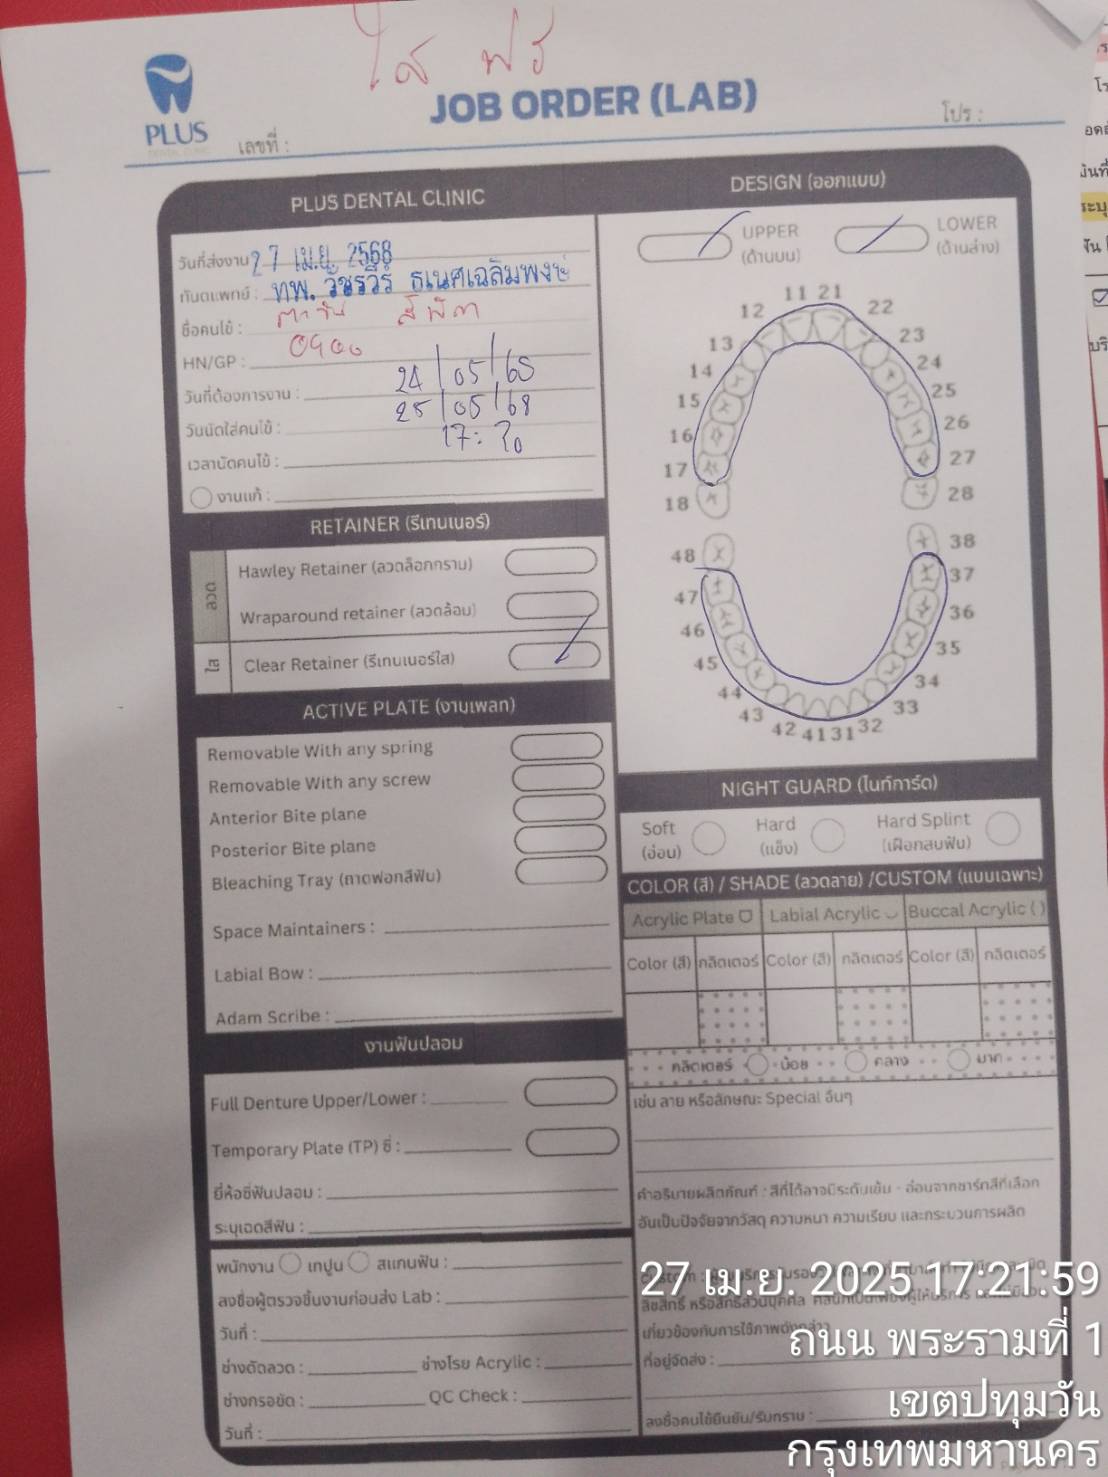 ใส ฟรี
PLUS
DENTAL CLINIC
JOB ORDER (LAB)
เลขที่ :
โปร :
PLUS DENTAL CLINIC
วันที่ส่งงาน 27 เม.ย. 2568
ทันตแพทย์ : ทพ. วัชรวีร์ ธเนศเฉลิมพงษ์
ชื่อคนไข้ :
HN/GP : 0900
วันที่ต้องการงาน : 24/05/68
วันนัดใส่คนไข้ : 25/05/68
เวลานัดคนไข้ : 17:20
งานแก้ :
RETAINER (รีเทนเนอร์)
ลวด
Hawley Retainer (ลวดล็อกกราม)
Wraparound retainer (ลวดล้อม)
ใส
Clear Retainer (รีเทนเนอร์ใส)
ACTIVE PLATE (งานเพลท)
Removable With any spring
Removable With any screw
Anterior Bite plane
Posterior Bite plane
Bleaching Tray (ถาดฟอกสีฟัน)
Space Maintainers :
Labial Bow :
Adam Scribe :
งานฟันปลอม
Full Denture Upper/Lower :
Temporary Plate (TP) ซี่ :
ยี่ห้อซี่ฟันปลอม :
ระบุเฉดสีฟัน :
พนักงาน เทปูน สแกนฟัน :
ลงชื่อผู้ตรวจชิ้นงานก่อนส่ง Lab :
วันที่ :
ช่างดัดลวด : ช่างโรย Acrylic :
ช่างกรอขัด : QC Check :
วันที่ :
DESIGN (ออกแบบ)
UPPER
(ด้านบน)
LOWER
(ด้านล่าง)
11 21
12 22
13 23
14 24
15 25
16 26
17 27
18 28
48 38
47 37
46 36
45 35
44 34
43 33
42 41 31 32
NIGHT GUARD (ไนท์การ์ด)
Soft
(อ่อน)
Hard
(แข็ง)
Hard Splint
(เฝือกสบฟัน)
COLOR (สี) / SHADE (ลวดลาย) /CUSTOM (แบบเฉพาะ)
Acrylic Plate Labial Acrylic Buccal Acrylic ( )
Color (สี) กลิตเตอร์ Color (สี) กลิตเตอร์ Color (สี) กลิตเตอร์
กลิตเตอร์ น้อย กลาง มาก
เช่น ลาย หรือลักษณะ Special อื่นๆ
คำอธิบายผลิตภัณฑ์ : สีที่ได้อาจมีระดับเข้ม - อ่อนจากชาร์ทสีที่เลือก
อันเป็นปัจจัยจากวัสดุ ความหนา ความเรียบ และกระบวนการผลิต
ที่อยู่จัดส่ง :
ลงชื่อคนไข้ยืนยัน/รับทราบ :
27 เม.ย. 2025 17:21:59
ถนน พระรามที่ 1
เขตปทุมวัน
กรุงเทพมหานคร